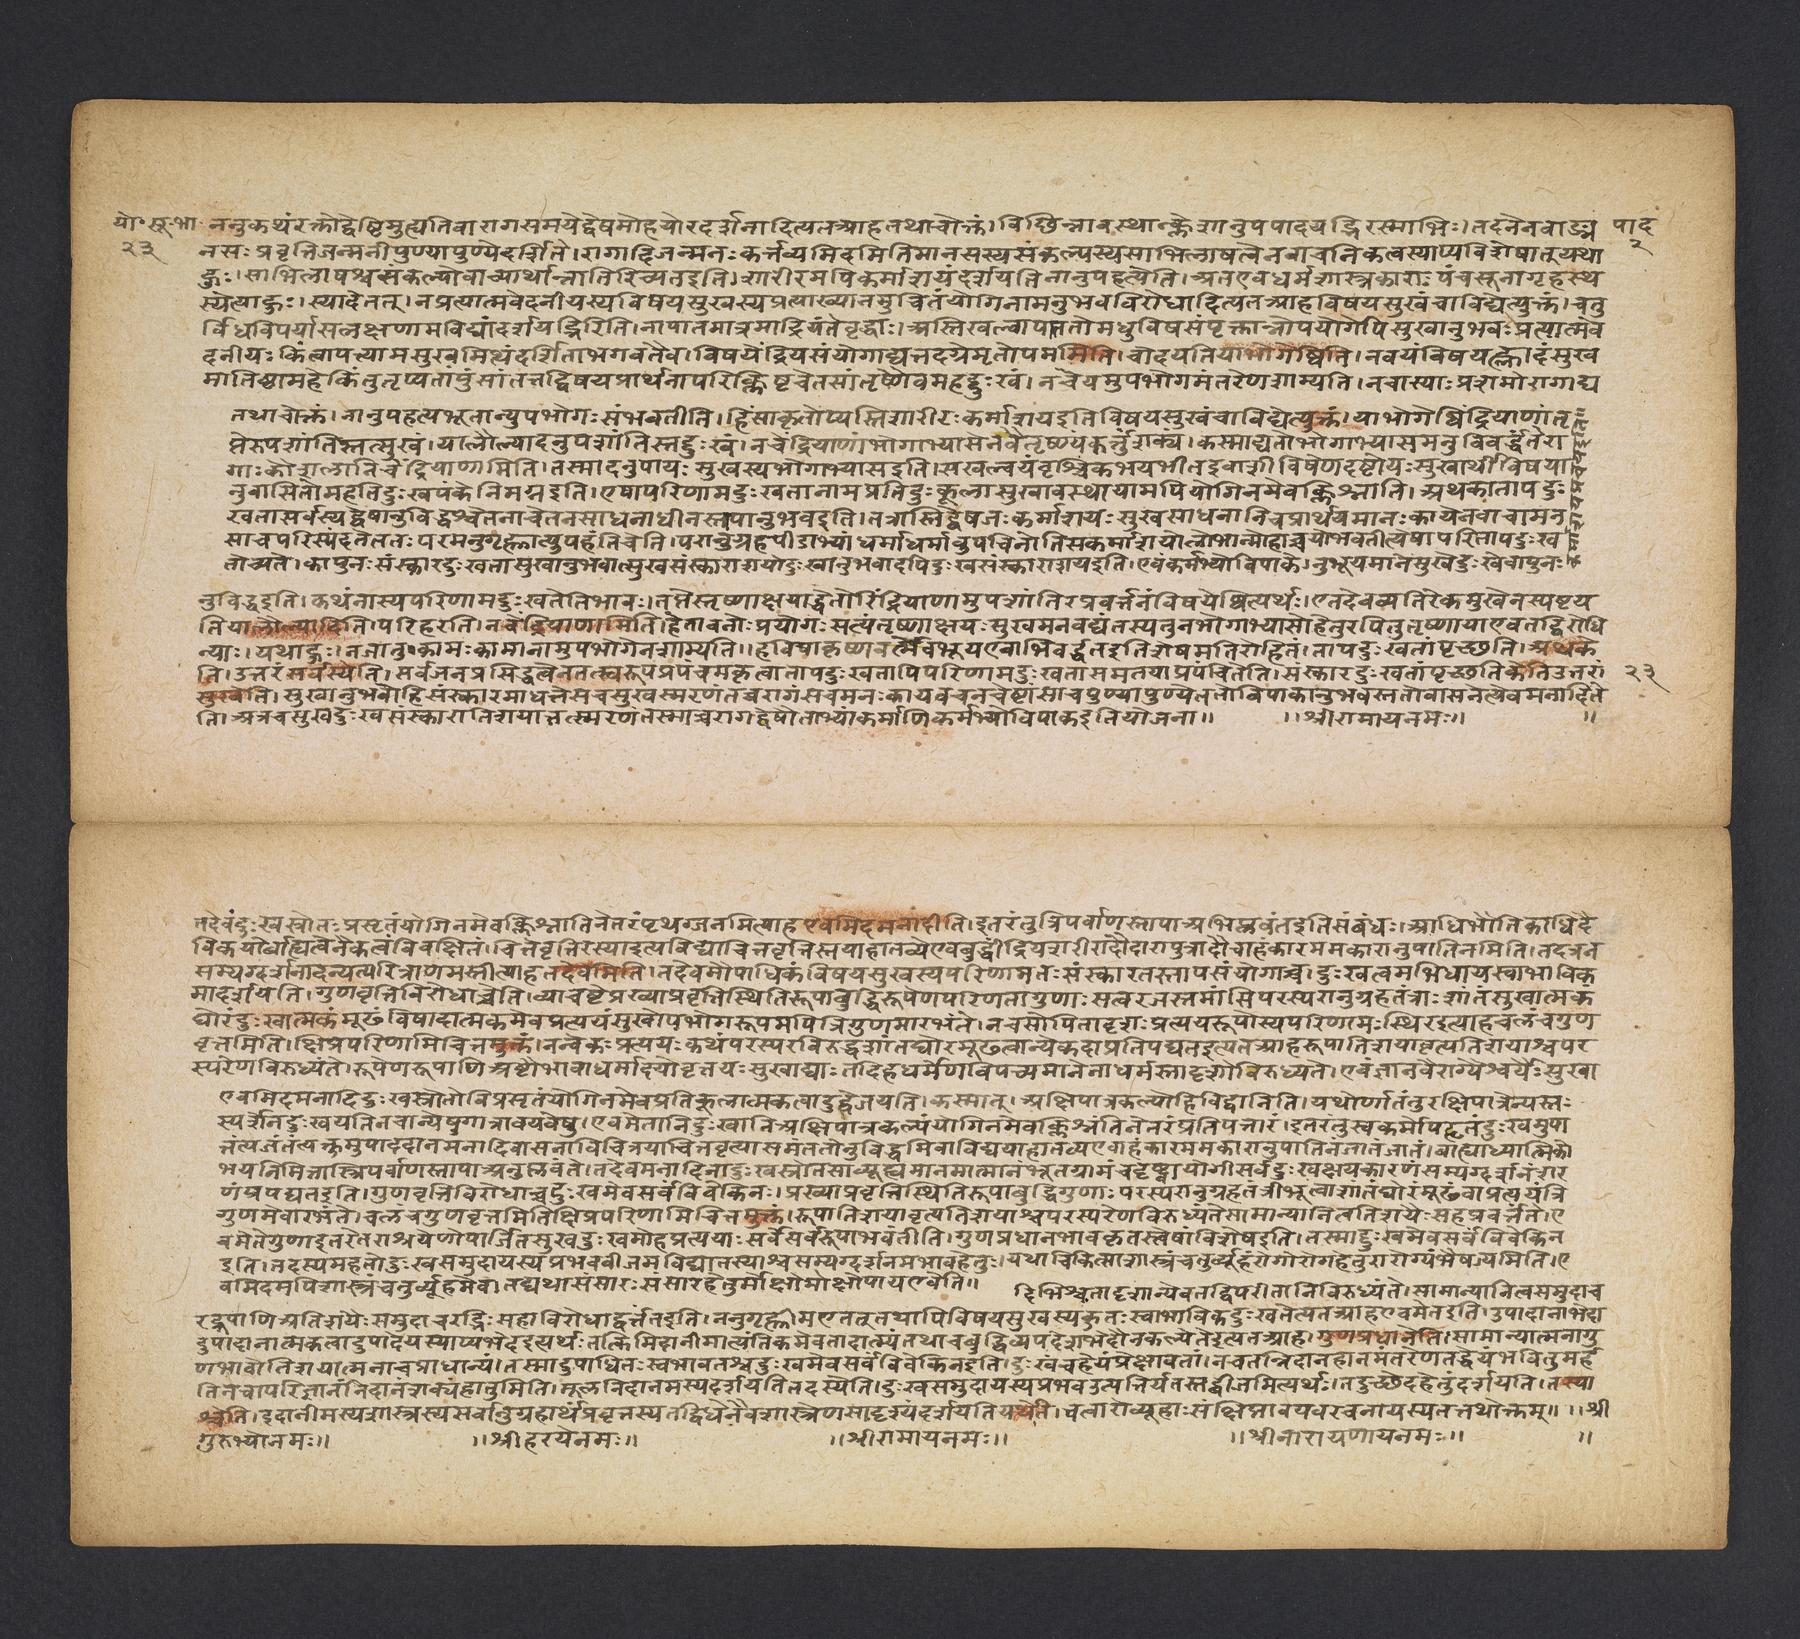 यो॰सू॰भा॰
२३
पाद
२
ननुकथंरक्तोद्वेष्टिमुह्यतिवारागसमयेद्वेषमोहयोरदर्शनादित्यतआहतथाचोक्तं।विछिन्नावस्थान्क्लेशानुपपादयद्भिरस्माभिः।तदनेनवाङ्म
नसःप्रवृत्तिजन्मनीपुण्यापुण्येदर्शिते।रागादिजन्मनःकर्त्तव्यमिदमितिमानसस्यसंकल्पस्यसाभिलाषत्वेनवाचनिकत्वस्याप्यविशेषात्यथा
हुः।साभिलाषश्चसंकल्पोवाच्यार्थान्नातिरिच्यतइति।शारीरमपिकर्माशयंदर्शयतिनानुपहत्येति।अतएवधर्मशास्त्रकाराःपंचसूनागृहस्थ
स्येत्याहुः।स्यादेतत्।नप्रत्यात्मवेदनीयस्यविषयसुखस्यप्रत्याख्यानमुचितंयोगिनामनुभवविरोधादित्यतआहविषयसुखंचाविद्येत्युक्तं।चतु
र्विधविपर्यासलक्षणामविद्यांदर्शयद्भिरिति।नापातमात्रमाद्रियंतेवृद्धाः।अस्तिखल्वापाततोमधुविषसंपृक्तान्नोपयोगेपिसुखानुभवःप्रत्यात्मवे
दनीयःकिंत्वायत्यामसुखमित्थंदर्शिताभगवतैव।विषयेंद्रियसंयोगाद्यत्तदग्रेमृतोपममिति।चोदयतियाभोगेष्विति।नवयंविषयह्लादंसुख
मातिष्ठामहेकिंतुतृप्यतांपुंसांतत्तद्विषयप्रार्थनापरिक्लिष्टचेतसांतृष्णैवमहद्दुःखं।नचेयमुपभोगमंतरेणशाम्यति।नचास्याःप्रशमोरागाद्य
तथाचोक्तं।नानुपहत्यभूतान्युपभोगःसंभवतीति।हिंसाकृतोप्यस्तिशारीरःकर्माशयइतिविषयसुखंचाविद्येत्युक्तं।याभोगेष्विंद्रियाणांतृ
प्तेरुपशांतिस्तत्सुखं।यालौल्यादनुपशांतिस्तद्दुःखं।नचेंद्रियाणांभोगाभ्यासेनवैतृष्ण्यंकर्त्तुंशक्यं।कस्माद्यतोभोगाभ्यासमनुविवर्द्धंतेरा
गाःकौशलानिचेंद्रियाणामिति।तस्मादनुपायःसुखस्यभोगाभ्यासइति।सखल्वयंवृश्चिकभयभीतइवाशीविषेणदष्टोयःसुखार्थीविषया
नुवासितोमहतिदुःखपंकेनिमग्नइति।एषापरिणामदुःखतानामप्रतिदुःकूलासुखावस्थायामपियोगिनमेवक्लिश्नाति।अथकातापदुः
खतासर्वस्यद्वेषानुविद्धश्चेतनाचेतनसाधनाधीनस्तापानुभवइति।तत्रास्तिद्वेषजःकर्माशयःसुखसाधनानिचप्रार्थयमानःकायेनवाचामन
साचपरिस्पंदतेततःपरमनुगृह्णात्युपहंतिचेति।परानुग्रहपीडाभ्यांधर्माधर्मावुपचिनोतिसकर्माशयोलोभान्मोहाच्चयोभवतीत्येषापरितापदुःख
तोच्यते।कापुनःसंस्कारदुःखतासुखानुभवात्सुखसंस्काराशयोदुःखानुभवादपिदुःखसंस्काराशयइति।एवंकर्मभ्योविपाकेनुभूयमानेसुखेदुःखेवापुनः
कर्माशयप्रचयइति॥
नुविद्धइति।कथंनास्यपरिणामदुःखतेतिभावः।तृप्तेस्तृष्णाक्षयाद्धेतोरिंद्रियाणामुपशांतिरप्रवर्त्तनंविषयेष्वित्यर्थः।एतदेवव्यतिरेकमुखेनस्पष्टय
तियालौल्यादिति।परिहरति।नचेंद्रियाणामिति।हेतावनोःप्रयोगःसत्यंतृष्णाक्षयःसुखमनवद्यंतस्यतुनभोगाभ्यासोहेतुरपितुतृष्णायाएवतद्विरोधि
न्याः।यथाहुः।नजातुकामःकामानामुपभोगेनशाम्यति॥हविषाकृष्णवर्त्मेवभूयएवाभिवर्द्धतइतिशेषमतिरोहितं।तापदुःखतांपृच्छति।अथके
ति।उत्तरंसर्वस्येति।सर्वजनप्रसिद्धत्वेनतत्स्वरूपप्रपंचमकृत्वातापदुःखतापिपरिणामदुःखतासमतयाप्रपंचितेति।संस्कारदुःखतांपृच्छतिकेतिउत्तरं
२३
सुखेति।सुखानुभवोहिसंस्कारमाधत्तेसचसुखस्मरणंतच्चरागंसचमनःकायवचनचेष्टांसाचपुण्यापुण्येततोविपाकानुभवस्ततोवासनेत्येवमनादिते
ति।अत्रचसुखदुःखसंस्कारातिशयात्तत्स्मरणंतस्माच्चरागद्वेषौताभ्यांकर्माणिकर्मभ्योविपाकइतियोजना॥ ॥श्रीरामायनमः॥ ॥
तदेवंदुःखस्रोतःप्रसृतंयोगिनमेवक्लिश्नातिनेतरंपृथग्जनमित्याहएवमिदमनादीति।इतरंतुत्रिपर्वाणस्तापाअभिप्लवंतइतिसंबंधः।आधिभौतिकाधिदै
विकयोर्बाह्यत्वेनैकत्वंविवक्षितं।चित्तेवृत्तिरस्याइत्यविद्याचित्तवृत्तिस्तयाहातव्येएवबुद्धींद्रियशरीरादौदारापुत्रादौचाहंकारममकारानुपातिनमिति।तदत्रन
सम्यग्दर्शनादन्यत्परित्राणमस्तीत्याहतदेवमिति।तदेवमौपाधिकंविषयसुखस्यपरिणामतःसंस्कारतस्तापसंयोगाच्च।दुःखत्वमभिधायस्वाभाविक
मादर्शयति।गुणवृत्तिविरोधाच्चेति।व्याचष्टेप्रख्याप्रवृत्तिस्थितिरूपाबुद्धिरूपेणपरिणतागुणाःसत्वरजस्तमांसिपरस्परानुग्रहतंत्राःशांतंसुखात्मकं
घोरंदुःखात्मकंमूढंविषादात्मकमेवप्रत्ययंसुखोपभोगरूपमपित्रिगुणमारभंते।नचसोपितादृशःप्रत्ययरूपोस्यपरिणामःस्थिरइत्याहचलंचगुण
वृत्तमिति।क्षिप्रपरिणामिचित्तमुक्तं।नन्वेकःप्रत्ययःकथंपरस्परविरुद्धशांतघोरमूढत्वान्येकदाप्रतिपद्यतइत्यतआहरूपातिशयावृत्यतिशयाश्चपर
स्परेणविरुध्यंते।रूपेणरूपाणिअष्टौभावाधर्मादयोवृत्तयःसुखाद्याःतदिहधर्मेणविपच्यमानेनाधर्मस्तादृशोविरुध्यते।एवंज्ञानवैराग्यैश्वर्यैःसुखा
एवमिदमनादिदुःखस्रोतोविप्रसृतंयोगिनमेवप्रतिकूलात्मकत्वादुद्वेजयति।कस्मात्।अक्षिपात्रकल्पोहिविद्वानिति।यथोर्णातंतुरक्षिपात्रेन्यस्तः
स्पर्शेनदुःखयतिनचान्येषुगात्रावयवेषु।एवमेतानिदुःखानिअक्षिपात्रकल्पंयोगिनमेवक्लिश्नंतिनेतरंप्रतिपत्तारं।इतरंतुस्वकर्मोपहृतंदुःखमुपा
त्तंत्यजंतंत्यक्तमुपाददानमनादिवासनाविचित्रयाचित्तवृत्यासमंततोनुविद्धमिवाविद्ययाहातव्यएवाहंकारममकारानुपातिनंजातंजातं।बाह्याध्यात्मिको
भयनिमित्तास्त्रिपर्वाणस्तापाअनुप्लवंते।तदेवमनादिनादुःखस्रोतसाव्युह्यमानमात्मानंभूतग्रामंचदृष्ट्वायोगीसर्वदुःखक्षयकारणंसम्यग्दर्शनंशर
णंप्रपद्यतइति।गुणवृत्तिविरोधाच्चदुःखमेवसर्वंविवेकिनः।प्रख्याप्रवृत्तिस्थितिरूपाबुद्धिगुणाःपरस्परानुग्रहतंत्रीभूत्वाशांतंघोरंमूढंवाप्रत्ययंत्रि
गुणमेवारभंते।चलंचगुणवृत्तमितिक्षिप्रपरिणामिचित्तमुक्तं।रूपातिशयावृत्यतिशयाश्चपरस्परेणविरुध्यंतेसामान्यानित्वतिशयैःसहप्रवर्त्तंते।ए
वमेतेगुणाइतरेतराश्रयेणोपार्जितसुखदुःखमोहप्रत्ययाःसर्वेसर्वरूपाभवंतीति।गुणप्रधानभावकृतस्त्वेषांविशेषइति।तस्माद्दुःखमेवसर्वंविवेकिन
इति।तदस्यमहतोदुःखसमुदायस्यप्रभवबीजमविद्यातस्याश्चसम्यग्दर्शनमभावहेतुः।यथाचिकित्साशास्त्रंचतुर्व्यूहंरोगोरोगहेतुरारोग्यंभैषज्यमिति।ए
वमिदमपिशास्त्रंचतुर्व्यूहमेव।तद्यथासंसारःसंसारहेतुर्मोक्षोमोक्षोपायएवेति॥
दिभिश्चतादृशान्येवतद्विपरीतानिविरुध्यंते।सामान्यानित्वसमुदाच
रद्रूपाणिअतिशयैःसमुदाचरद्भिःसहाविरोधाद्वर्त्तंतइति।ननुगृह्णीमएतत्तथापिविषयसुखस्यकुतःस्वाभाविकदुःखतेत्यतआहएवमेतइति।उपादानाभेदा
दुपादानात्मकत्वादुपादेयस्याप्यभेदइत्यर्थःतत्किमिदानीमात्यंतिकमेवतादात्म्यंतथाचबुद्धिव्यपदेशभेदौनकल्पेतेइत्यतआह।गुणप्रधानेति।सामान्यात्मनागु
णभावोतिशयात्मनाचप्राधान्यं।तस्मादुपाधितःस्वभावतश्चदुःखमेवसर्वंविवेकिनइति।दुःखंचहेयंप्रेक्षावतां।नचतन्निदानहानमंतरेणतद्धेयंभवितुमर्ह
तिनचापरिज्ञातंनिदानंशक्यंहातुमिति।मूलनिदानमस्यदर्शयतितदस्येति।दुःखसमुदायस्यप्रभवउत्पत्तिर्यतस्तद्बीजमित्यर्थः।तदुच्छेदहेतुंदर्शयति।तस्या
श्चेति।इदानीमस्यशास्त्रस्यसर्वानुग्रहार्थंप्रवृत्तस्यतद्विधेनैवशास्त्रेणसादृश्यंदर्शयतियथेति।चत्वारोव्यूहाःसंक्षिप्तावयवरचनायस्यतत्तथोक्तम्॥ ॥श्री
गुरुभ्योनमः॥ ॥श्रीहरयेनमः॥ ॥श्रीरामायनमः॥ ॥श्रीनारायणायनमः॥ ॥